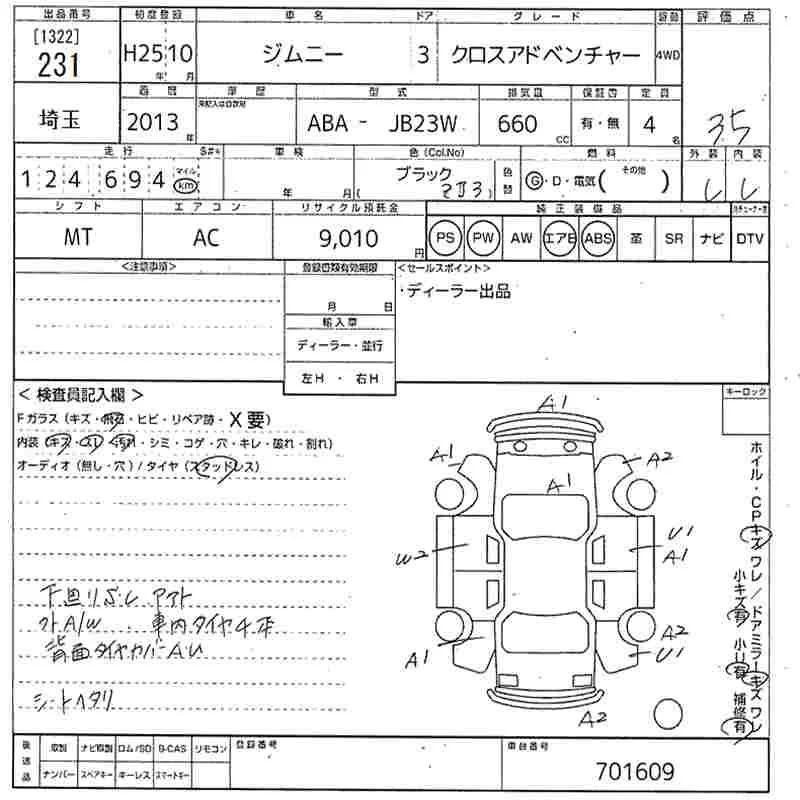 出品番号 初度登録 車名 ドア グレード 駆動 評価点
[1322]
231 H25 10 ジムニー 3 クロスアドベンチャー 4WD
年 月
西暦 車歴 型式 排気量 保証書 定員
未記入は自家用
埼玉 2013年 ABA - JB23W 660 CC 有・無 4名 3.5
走行 S#* 車検 色(Col.No) 燃料 外装 内装
124694 マイル km 年 月 ブラック 色替 G・D・電気( その他 )
(ZJ3)
シフト エアコン リサイクル預託金 純正装備品
MT AC 9,010円 PS PW AW エアB ABS 革 SR ナビ DTV
<注意事項> 登録書類有効期限 <セールスポイント>
月 日 ・ディーラー出品
輸入車
ディーラー・並行
左H ・ 右H
<検査員記入欄> キーロック
Fガラス(キズ・飛石・ヒビ・リペア跡・X要)
内装(キズ・スレ・汚れ・シミ・コゲ・穴・キレ・破れ・割れ)
オーディオ(無し・穴)/タイヤ(スタッドレス)
A1
A1 A2
A1
W2 U1
A1
A1 A2
U1
A2
ホイル・CPキズ ワレ/ドアミラーキズ ワレ
小キズ有 小U有 補修有
下廻りサビ アマト
フトA/W . 車内タイヤ4本
背面タイヤカバーAU
シートヘタリ
後送品 取説 ナビ取説 ロム/SD B-CAS リモコン 登録番号 車台番号
ナンバー スペアキー キーレス スマートキー 701609